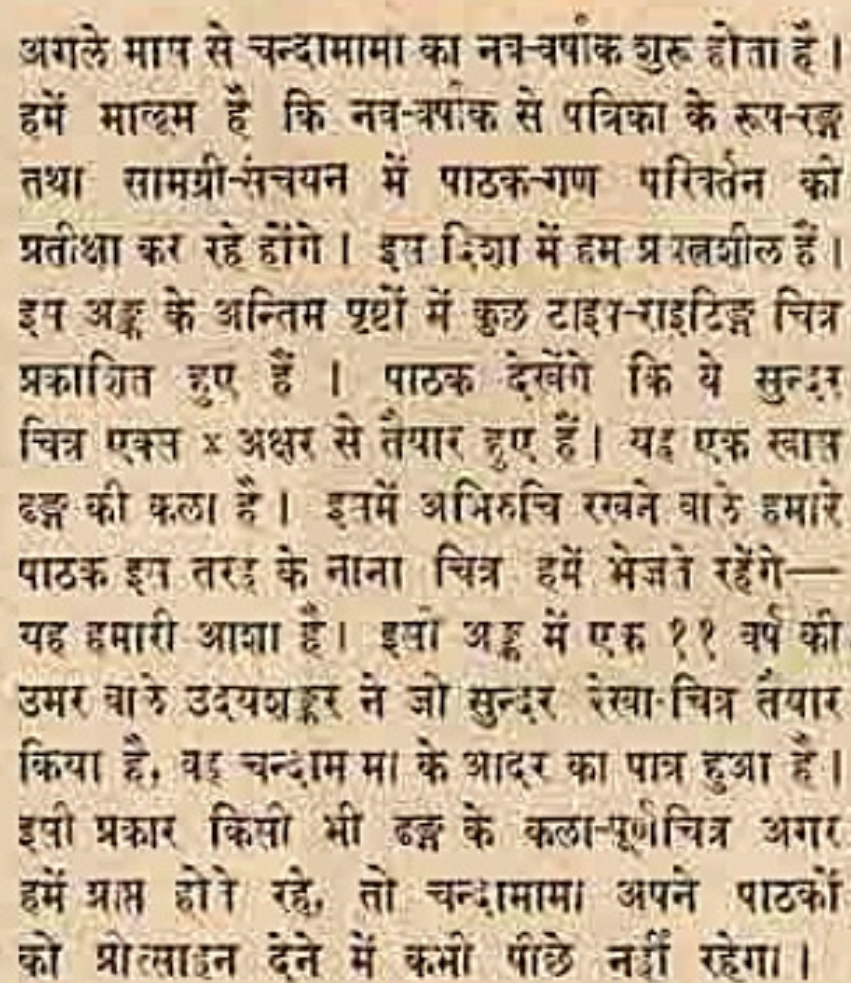 अगले मास से चन्दामामा का नव-वर्षांक शुरू होता है।
हमें मालूम है कि नव-वर्षांक से पत्रिका के रूप-रङ्ग
तथा सामग्री-संचयन में पाठक-गण परिवर्तन की
प्रतीक्षा कर रहे होंगे। इस दिशा में हम प्रयत्नशील हैं।
इस अङ्क के अन्तिम पृष्टों में कुछ टाइप-राइटिङ्ग चित्र
प्रकाशित हुए हैं । पाठक देखेंगे कि ये सुन्दर
चित्र एक्स x अक्षर से तैयार हुए हैं। यह एक खास
ढङ्ग की कला है। इसमें अभिरुचि रखने वाले हमारे
पाठक इस तरह के नाना चित्र हमें भेजते रहेंगे—
यह हमारी आशा है। इसी अङ्क में एक ११ वर्ष की
उमर वाले उदयशङ्कर ने जो सुन्दर रेखा-चित्र तैयार
किया है, वह चन्दामामा के आदर का पात्र हुआ है।
इसी प्रकार किसी भी ढङ्ग के कला-पूर्णचित्र अगर
हमें प्राप्त होते रहे, तो चन्दामामा अपने पाठकों
को प्रोत्साहन देने में कभी पीछे नहीं रहेगा।